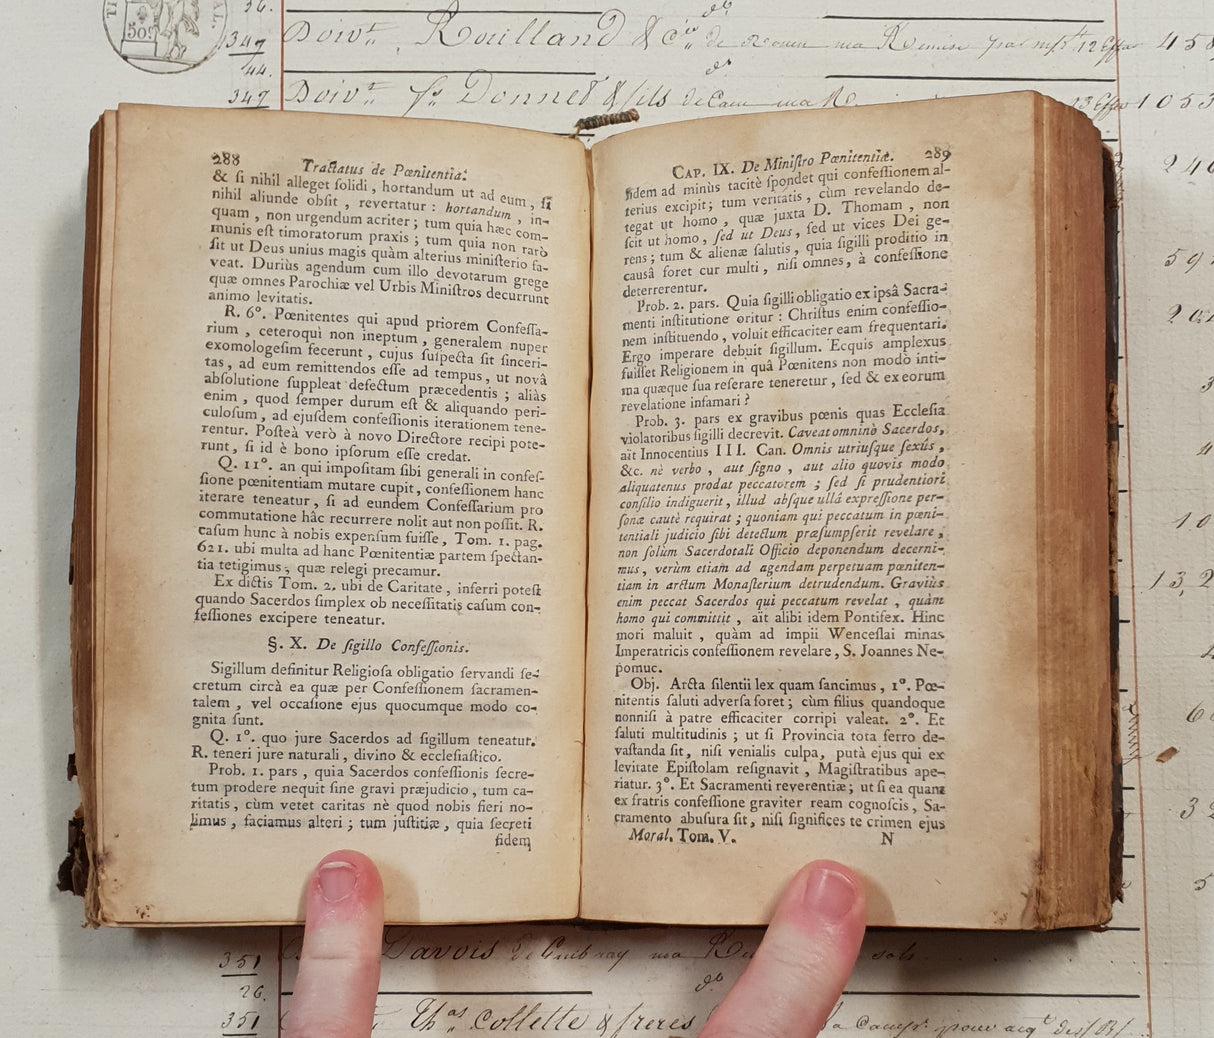 347
44.
347
Doivt. Rouilland & Cie de Rouen ma Remise
Doivt. fs. Donnet & fils de Caen ma Re
288
Tractatus de Pœnitentiâ.
& ſi nihil alleget ſolidi, hortandum ut ad eum, ſi
nihil aliunde obſit, revertatur : hortandum, in-
quam, non urgendum acriter ; tum quia hæc com-
munis eſt timoratorum praxis ; tum quia non rarò
ſit ut Deus unius magis quàm alterius miniſterio fa-
veat. Duriùs agendum cum illo devotarum grege
quæ omnes Parochiæ vel Urbis Miniſtros decurrunt
animo levitatis.
R. 6°. Pœnitentes qui apud priorem Confeſſa-
rium, ceteroquì non ineptum, generalem nuper
exomologeſim fecerunt, cujus ſuſpecta ſit ſinceri-
tas, ad eum remittendos eſſe ad tempus, ut novâ
abſolutione ſuppleat defectum præcedentis ; aliàs
enim, quod ſemper durum eſt & aliquando peri-
culoſum, ad ejuſdem confeſſionis iterationem tene-
rentur. Poſteà verò à novo Directore recipi pote-
runt, ſi id è bono ipſorum eſſe credat.
Q. 11°. an qui impoſitam ſibi generali in confeſ-
ſione pœnitentiam mutare cupit, confeſſionem hanc
iterare teneatur, ſi ad eundem Confeſſarium pro
commutatione hâc recurrere nolit aut non poſſit. R.
caſum hunc à nobis expenſum fuiſſe, Tom. 1. pag.
621. ubi multa ad hanc Pœnitentiæ partem ſpectan-
tia tetigimus, quæ relegi precamur.
Ex dictis Tom. 2. ubi de Caritate, inferri poteſt
quando Sacerdos ſimplex ob neceſſitatis caſum con-
feſſiones excipere teneatur.
§. X. De ſigillo Confeſſionis.
Sigillum definitur Religioſa obligatio ſervandi ſe-
cretum circà ea quæ per Confeſſionem ſacramen-
talem, vel occaſione ejus quocumque modo co-
gnita ſunt.
Q. 1°. quo jure Sacerdos ad ſigillum teneatur.
R. teneri jure naturali, divino & eccleſiaſtico.
Prob. 1. pars, quia Sacerdos confeſſionis ſecre-
tum prodere nequit ſine gravi præjudicio, tum ca-
ritatis, cùm vetet caritas nè quod nobis fieri no-
limus, faciamus alteri ; tum juſtitiæ, quia ſecreti
fidem
CAP. IX. De Miniſtro Pœnitentiæ. 289
fidem ad minùs tacitè ſpondet qui confeſſionem al-
terius excipit; tum veritatis, cùm revelando de-
tegat ut homo, quæ juxta D. Thomam, non
ſcit ut homo, ſed ut Deus, ſed ut vices Dei ge-
rens ; tum & alienæ ſalutis, quia ſigilli proditio in
causâ foret cur multi, niſi omnes, à confeſſione
deterrerentur.
Prob. 2. pars. Quia ſigilli obligatio ex ipsâ Sacra-
menti inſtitutione oritur : Chriſtus enim confeſſio-
nem inſtituendo, voluit efficaciter eam frequentari.
Ergo imperare debuit ſigillum. Ecquis amplexus
fuiſſet Religionem in quâ Pœnitens non modò inti-
ma quæque ſua reſerare teneretur, ſed & ex eorum
revelatione infamari ?
Prob. 3. pars ex gravibus pœnis quas Eccleſia
violatoribus ſigilli decrevit. Caveat omninò Sacerdos,
aït Innocentius III. Can. Omnis utriuſque ſexûs,
&c. nè verbo, aut ſigno, aut alio quovis modo
aliquatenus prodat peccatorem ; ſed ſi prudentiori
conſilio indiguerit, illud abſque ullâ expreſſione per-
ſonæ cautè requirat ; quoniam qui peccatum in pœni-
tentiali judicio ſibi detectum præſumpſerit revelare,
non ſolùm Sacerdotali Officio deponendum decerni-
mus, verùm etiam ad agendam perpetuam pœniten-
tiam in arctum Monaſterium detrudendum. Graviùs
enim peccat Sacerdos qui peccatum revelat, quàm
homo qui committit, aït alibi idem Pontifex. Hinc
mori maluit, quàm ad impii Wenceſlai minas
Imperatricis confeſſionem revelare, S. Joannes Ne-
pomuc.
Obj. Arcta ſilentii lex quam ſancimus, 1°. Pœ-
nitentis ſaluti adverſa foret ; cùm filius quandoque
nonniſi à patre efficaciter corripi valeat. 2°. Et
ſaluti multitudinis ; ut ſi Provincia tota ferro de-
vaſtanda ſit, niſi venialis culpa, putà ejus qui ex
levitate Epiſtolam reſignavit, Magiſtratibus ape-
riatur. 3°. Et Sacramenti reverentiæ; ut ſi ea quam
ex fratris confeſſione graviter ream cognoſcis, Sa-
cramento abuſura ſit, niſi ſignifices te crimen ejus
Moral. Tom. V. N
351
26.
351
Davois de Guibray ma
Thas. Collette & freres